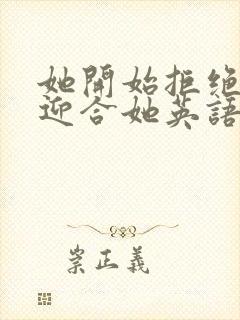 她開始拒絕
迎合她英語
崇正義